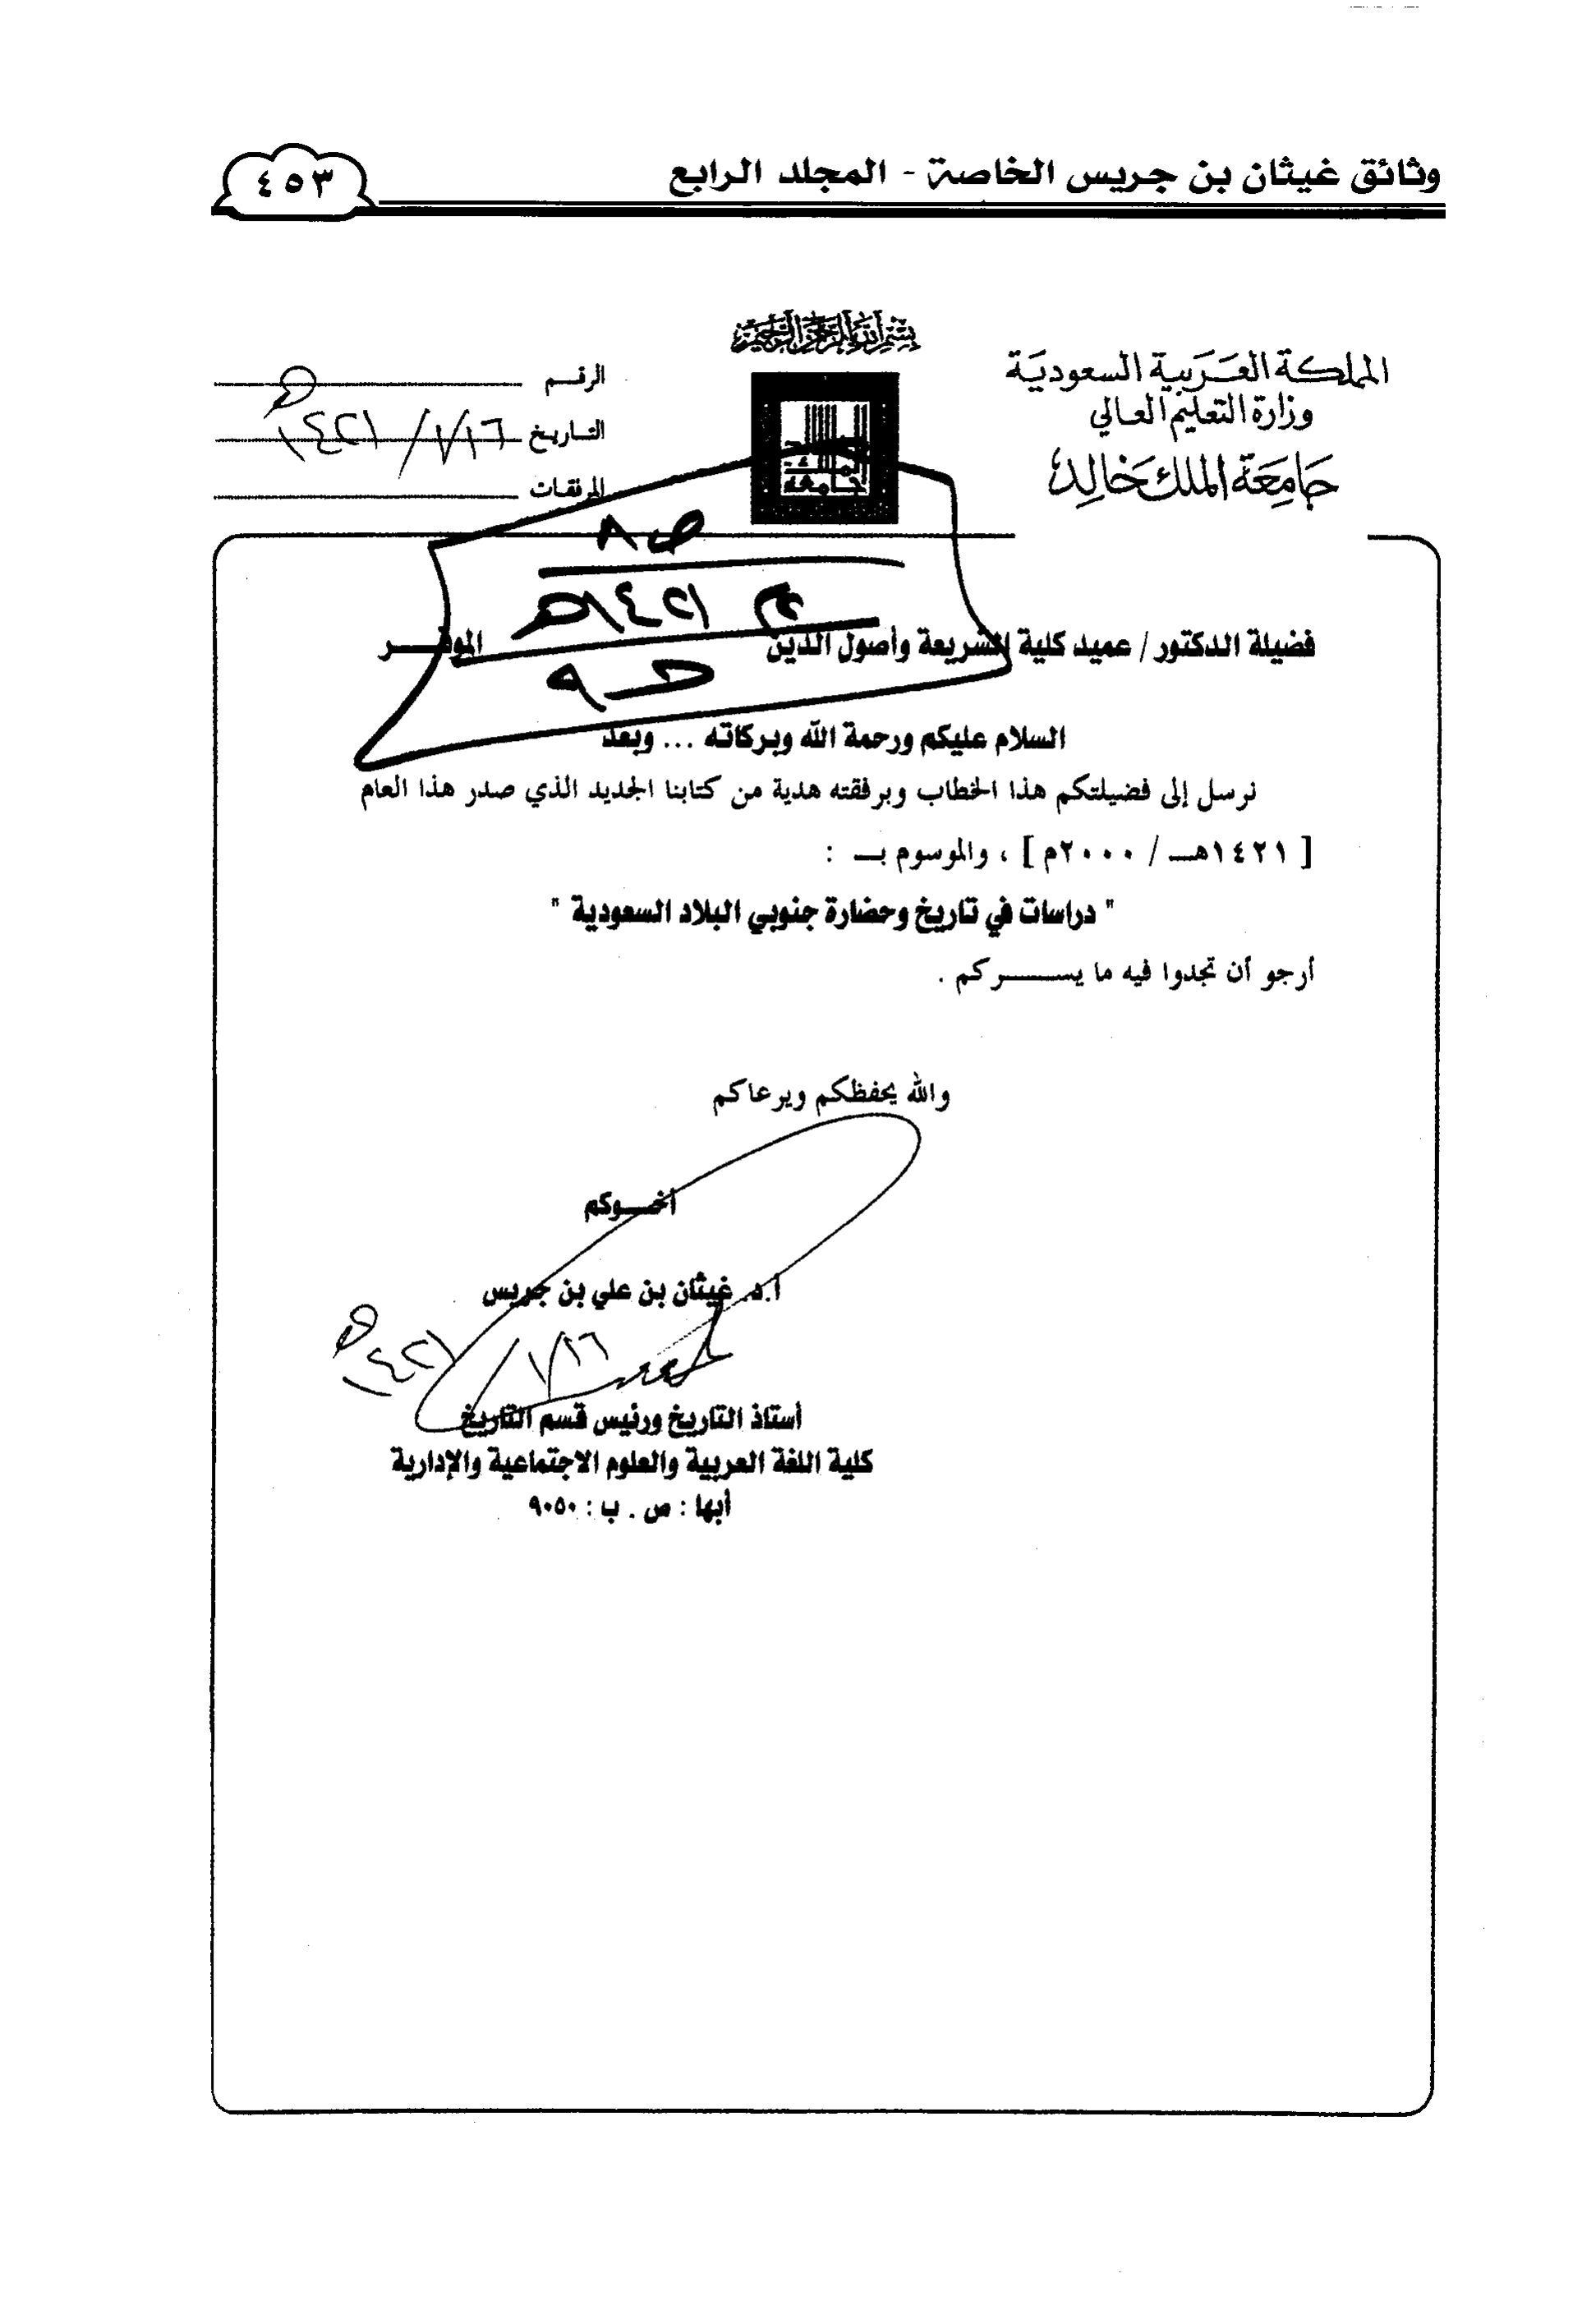 وثائق غيثان بن جريس الخاصة - المجلد الرابع
٤٥٣
بسم الله الرحمن الرحيم
المملكة العربية السعودية
وزارة التعليم العالي
جامعة الملك خالد
الرقم
التاريخ ١٦/٧/١٤٢١هـ
المرفقات
جامعة
ص ٨
١٤٢١هـ
فضيلة الدكتور / عميد كلية الشريعة وأصول الدين الموقـــر
السلام عليكم ورحمة الله وبركاته ... وبعد
نرسل إلى فضيلتكم هذا الخطاب وبرفقته هدية من كتابنا الجديد الذي صدر هذا العام
[ ١٤٢١هـ / ٢٠٠٠م ] ، والموسوم بـ :
" دراسات في تاريخ وحضارة جنوبي البلاد السعودية "
أرجو أن تجدوا فيه ما يســـركم .
والله يحفظكم ويرعاكم
أخـــوكم
أ.د. غيثان بن علي بن جريس
١٦/٧/١٤٢١هـ
أستاذ التاريخ ورئيس قسم التاريخ
كلية اللغة العربية والعلوم الاجتماعية والإدارية
أبها : ص . ب : ٩٠٥٠